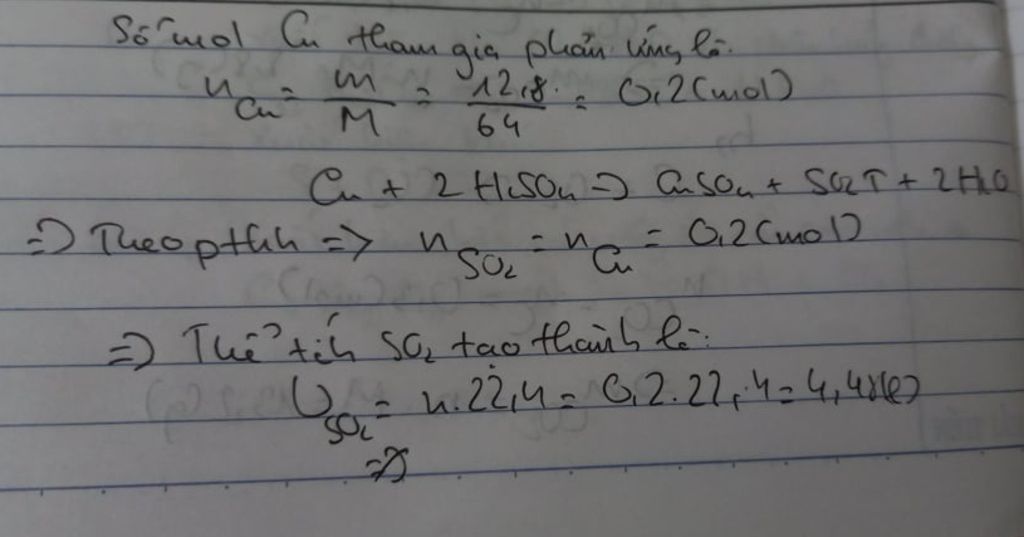 Số mol Cu tham gia phản ứng là.
n Cu = m/M = 12,8/64 = 0,2 (mol)
Cu + 2H2SO4 => CuSO4 + SO2↑ + 2H2O
=> Theo pthh => n SO2 = n Cu = 0,2 (mol)
=> Thể tích SO2 tạo thành là:
V SO2 = n.22,4 = 0,2.22,4 = 4,48(l)
=>